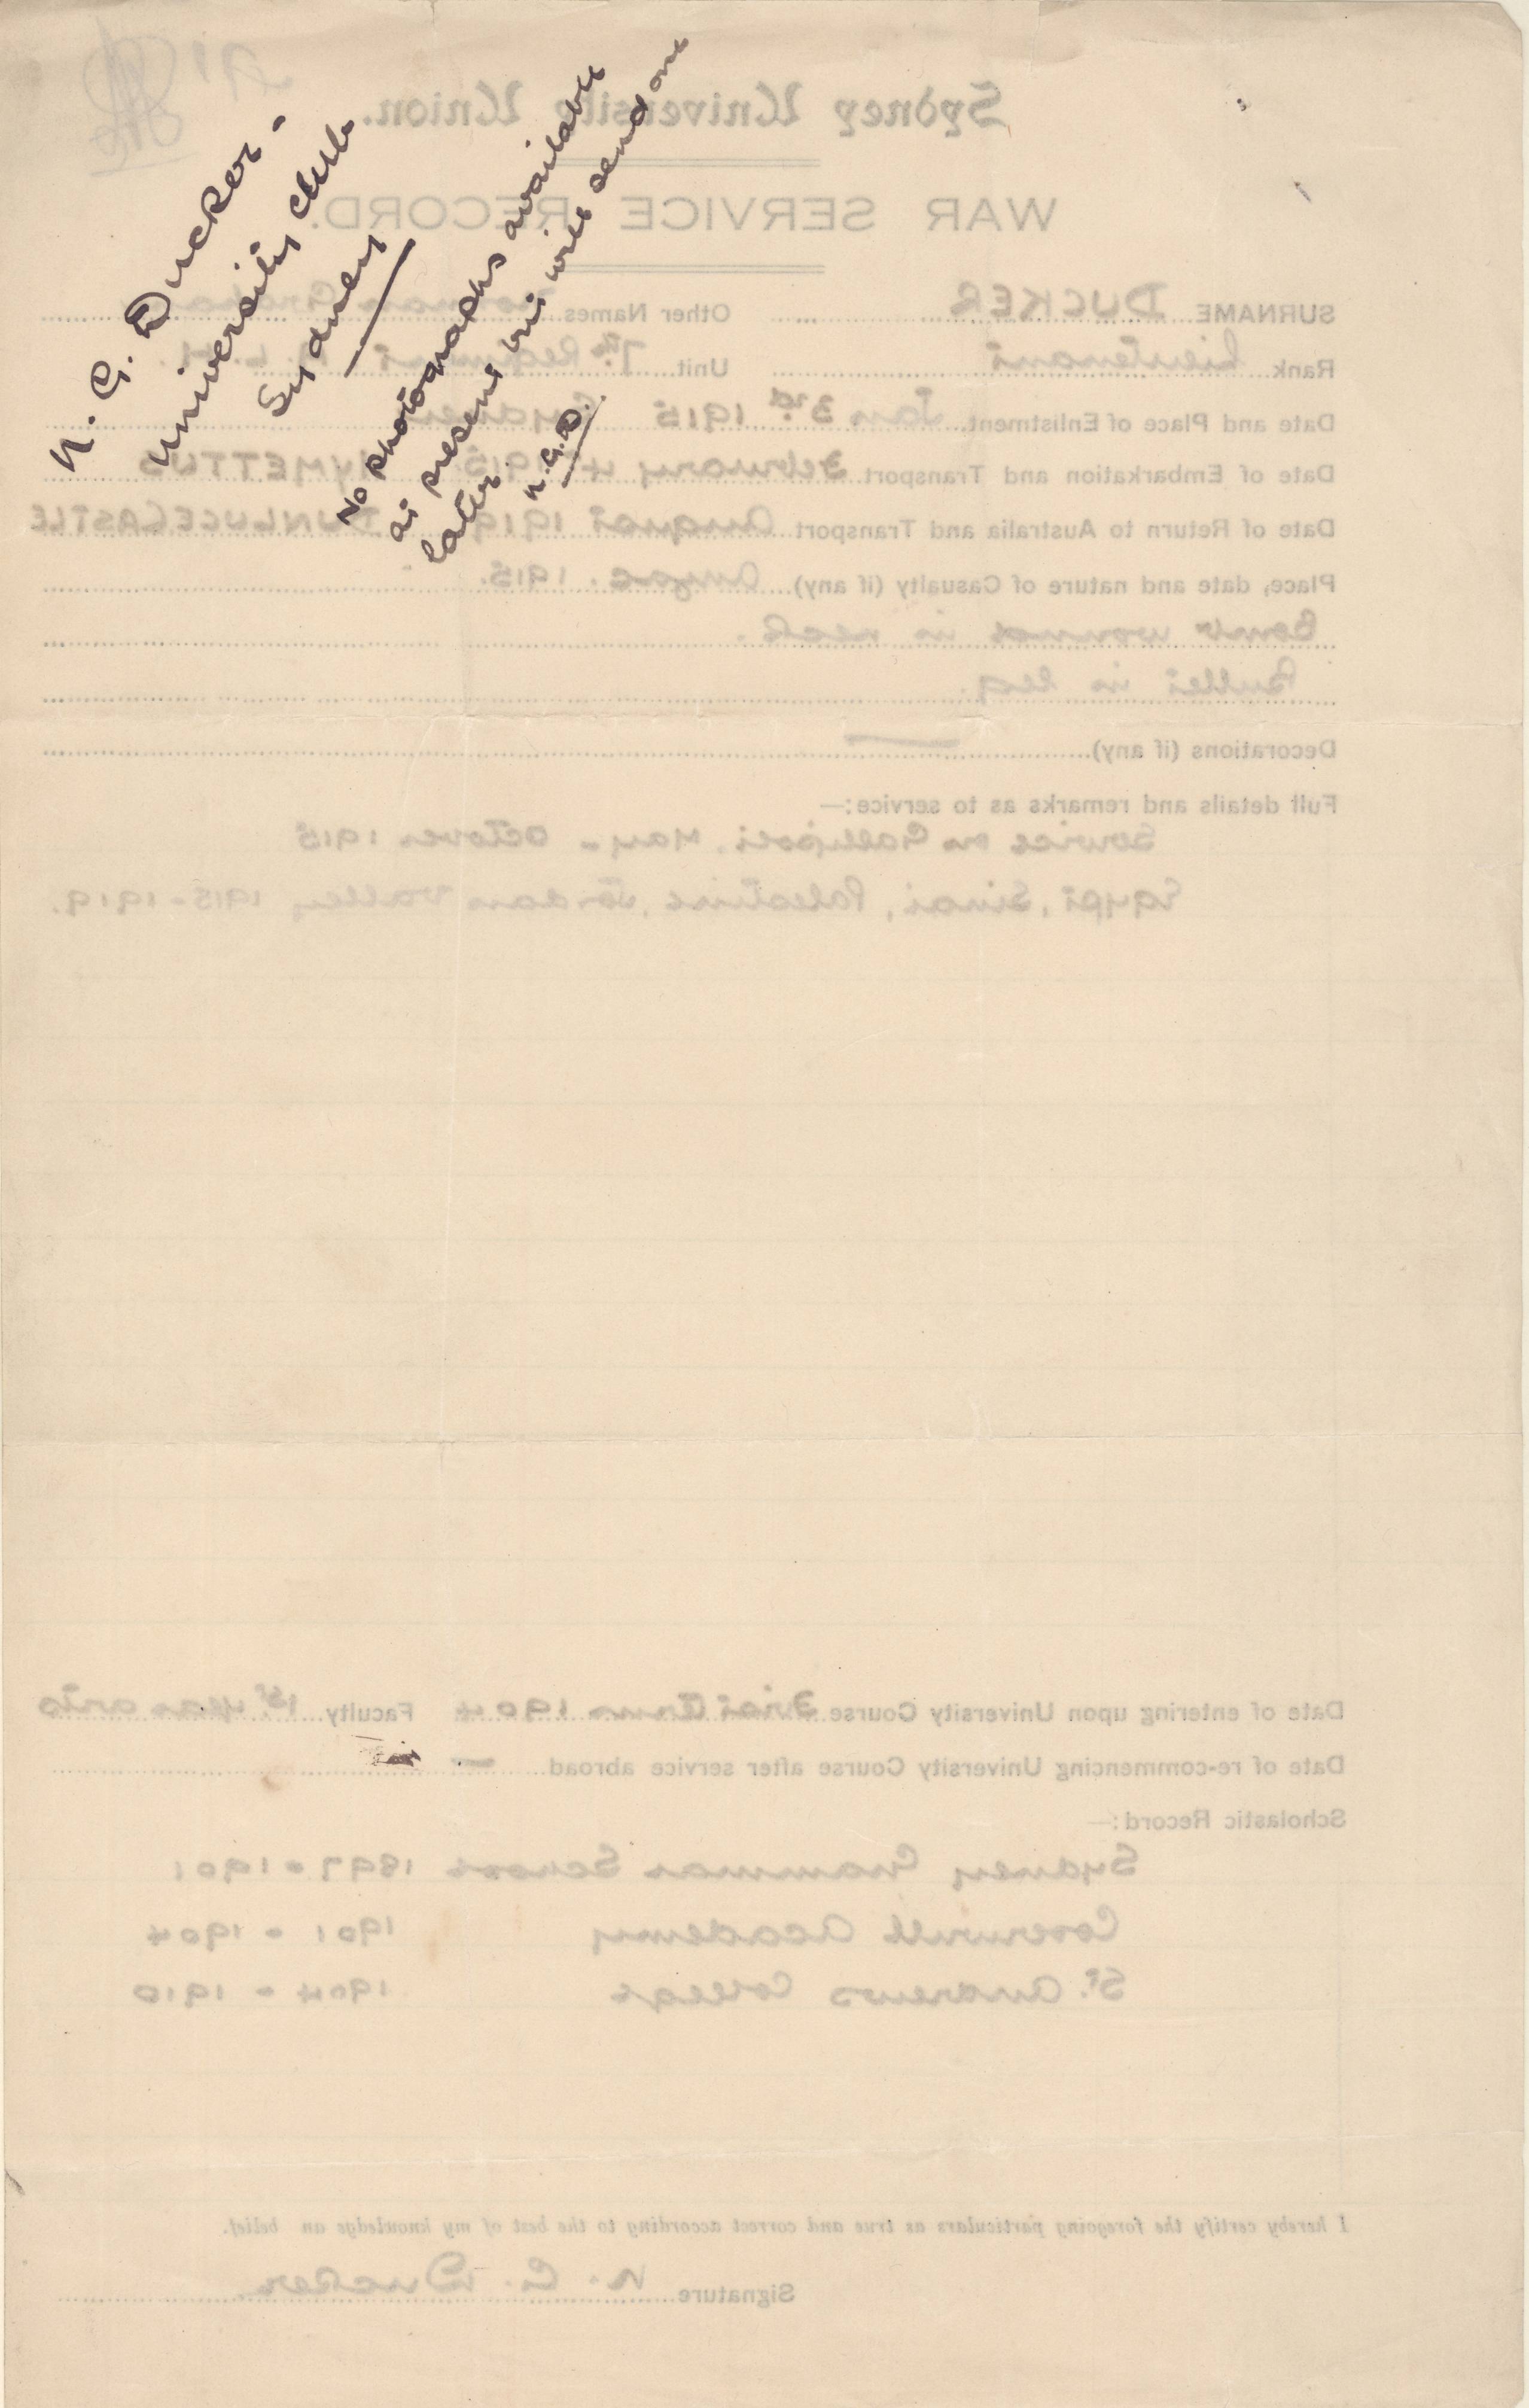 N. G. Ducker -
University Club
Sydney
No photographs available
at present but will send one
later.
N.G.D.
Sydney University Union.
WAR SERVICE RECORD.
SURNAME DUCKER Other Names Norman Graham
Rank Lieutenant Unit 7th Regiment A.L.H.
Date and Place of Enlistment Jan 3rd 1915 Sydney
Date of Embarkation and Transport February 4 1915 HYMETTUS
Date of Return to Australia and Transport August 1919 DUNLUCE CASTLE
Place, date and nature of Casualty (if any) Anzac. 1915.
Bomb wounds in neck.
Bullet in leg.
Decorations (if any) —
Full details and remarks as to service:—
Service on Gallipoli, May - October 1915
Egypt, Sinai, Palestine, Jordan Valley 1915-1919.
Date of entering upon University Course First Term 1904 Faculty 1st year arts
Date of re-commencing University Course after service abroad —
Scholastic Record:—
Sydney Grammar School 1897-1901
Cooerwull Academy 1901 - 1904
St. Andrews College 1904 - 1910
I hereby certify the foregoing particulars as true and correct according to the best of my knowledge an belief.
Signature N. G. Ducker